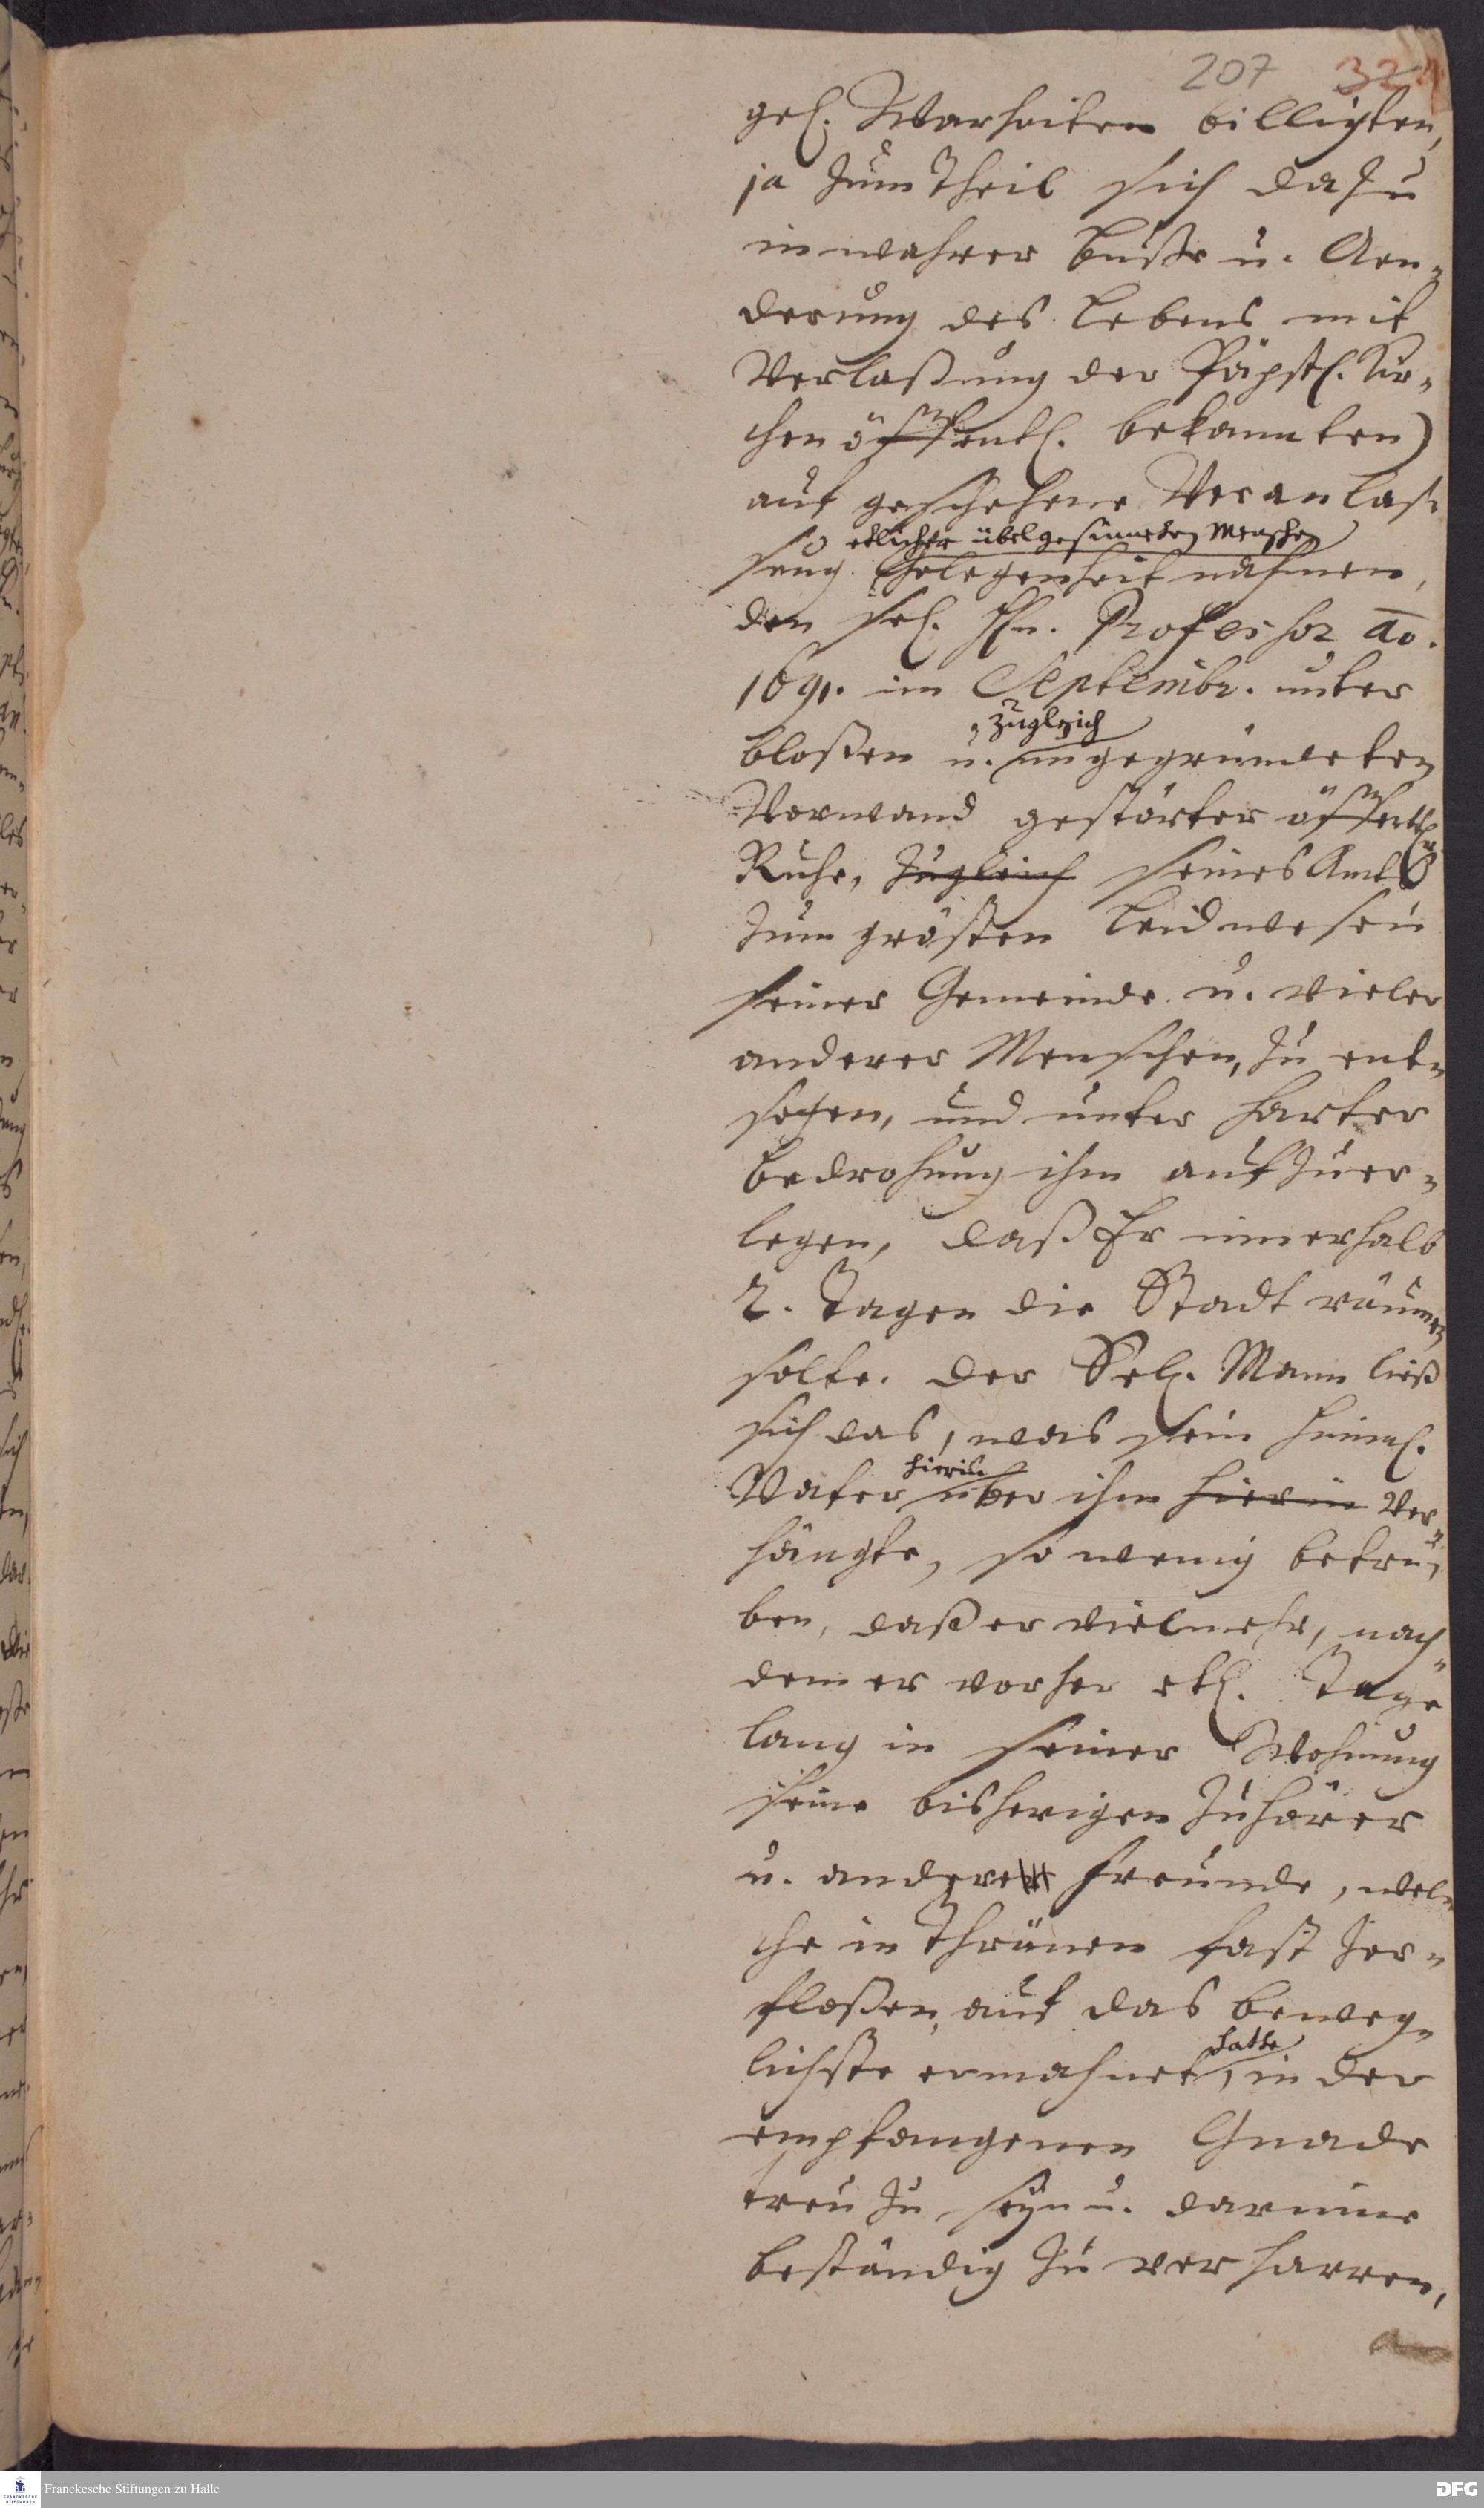 207 324
gel. Warheiten billigten,
ja zum Theil sich dazu
in wahrer Buße u. Aen-
derung des Lebens mit
Verlaßung der Päpstl. Kir-
chen öffentl. bekannten)
auf geschehene Veranlas-
etlicher übelgesinneten Menschen
sung Gelegenheit nahmen,
den sel. Hn. Professor ao.
1691. im Septembr. unter
zugleich
bloßen u. ungegründeten
Vorwand gestörter öffentl.
Ruhe, zugleich seines Amts
zum grösten Leidwesen
seiner Gemeinde u. vieler
anderer Menschen, zu ent-
setzen, und unter harter
Bedrohung ihm aufzuer-
legen, daß Er innerhalb
2. Tagen die Stadt räumen
solte. Der Sel. Mann ließ
sich das, was sein himml.
hierin
Vater über ihm hierin ver-
hängte, so wenig betrü-
ben, daß er vielmehr, nach-
dem er vorher etl. Tage
lang in seiner Wohnung
seine bisherigen Zuhörer
u. andere Freunde, wel-
che in Thränen fast zer-
floßen, auf das beweg-
hatte
lichste ermahnet, in der
empfangenen Gnade
treu zu seyn u. darinne
beständig zu verharren,
Franckesche Stiftungen zu Halle
DFG